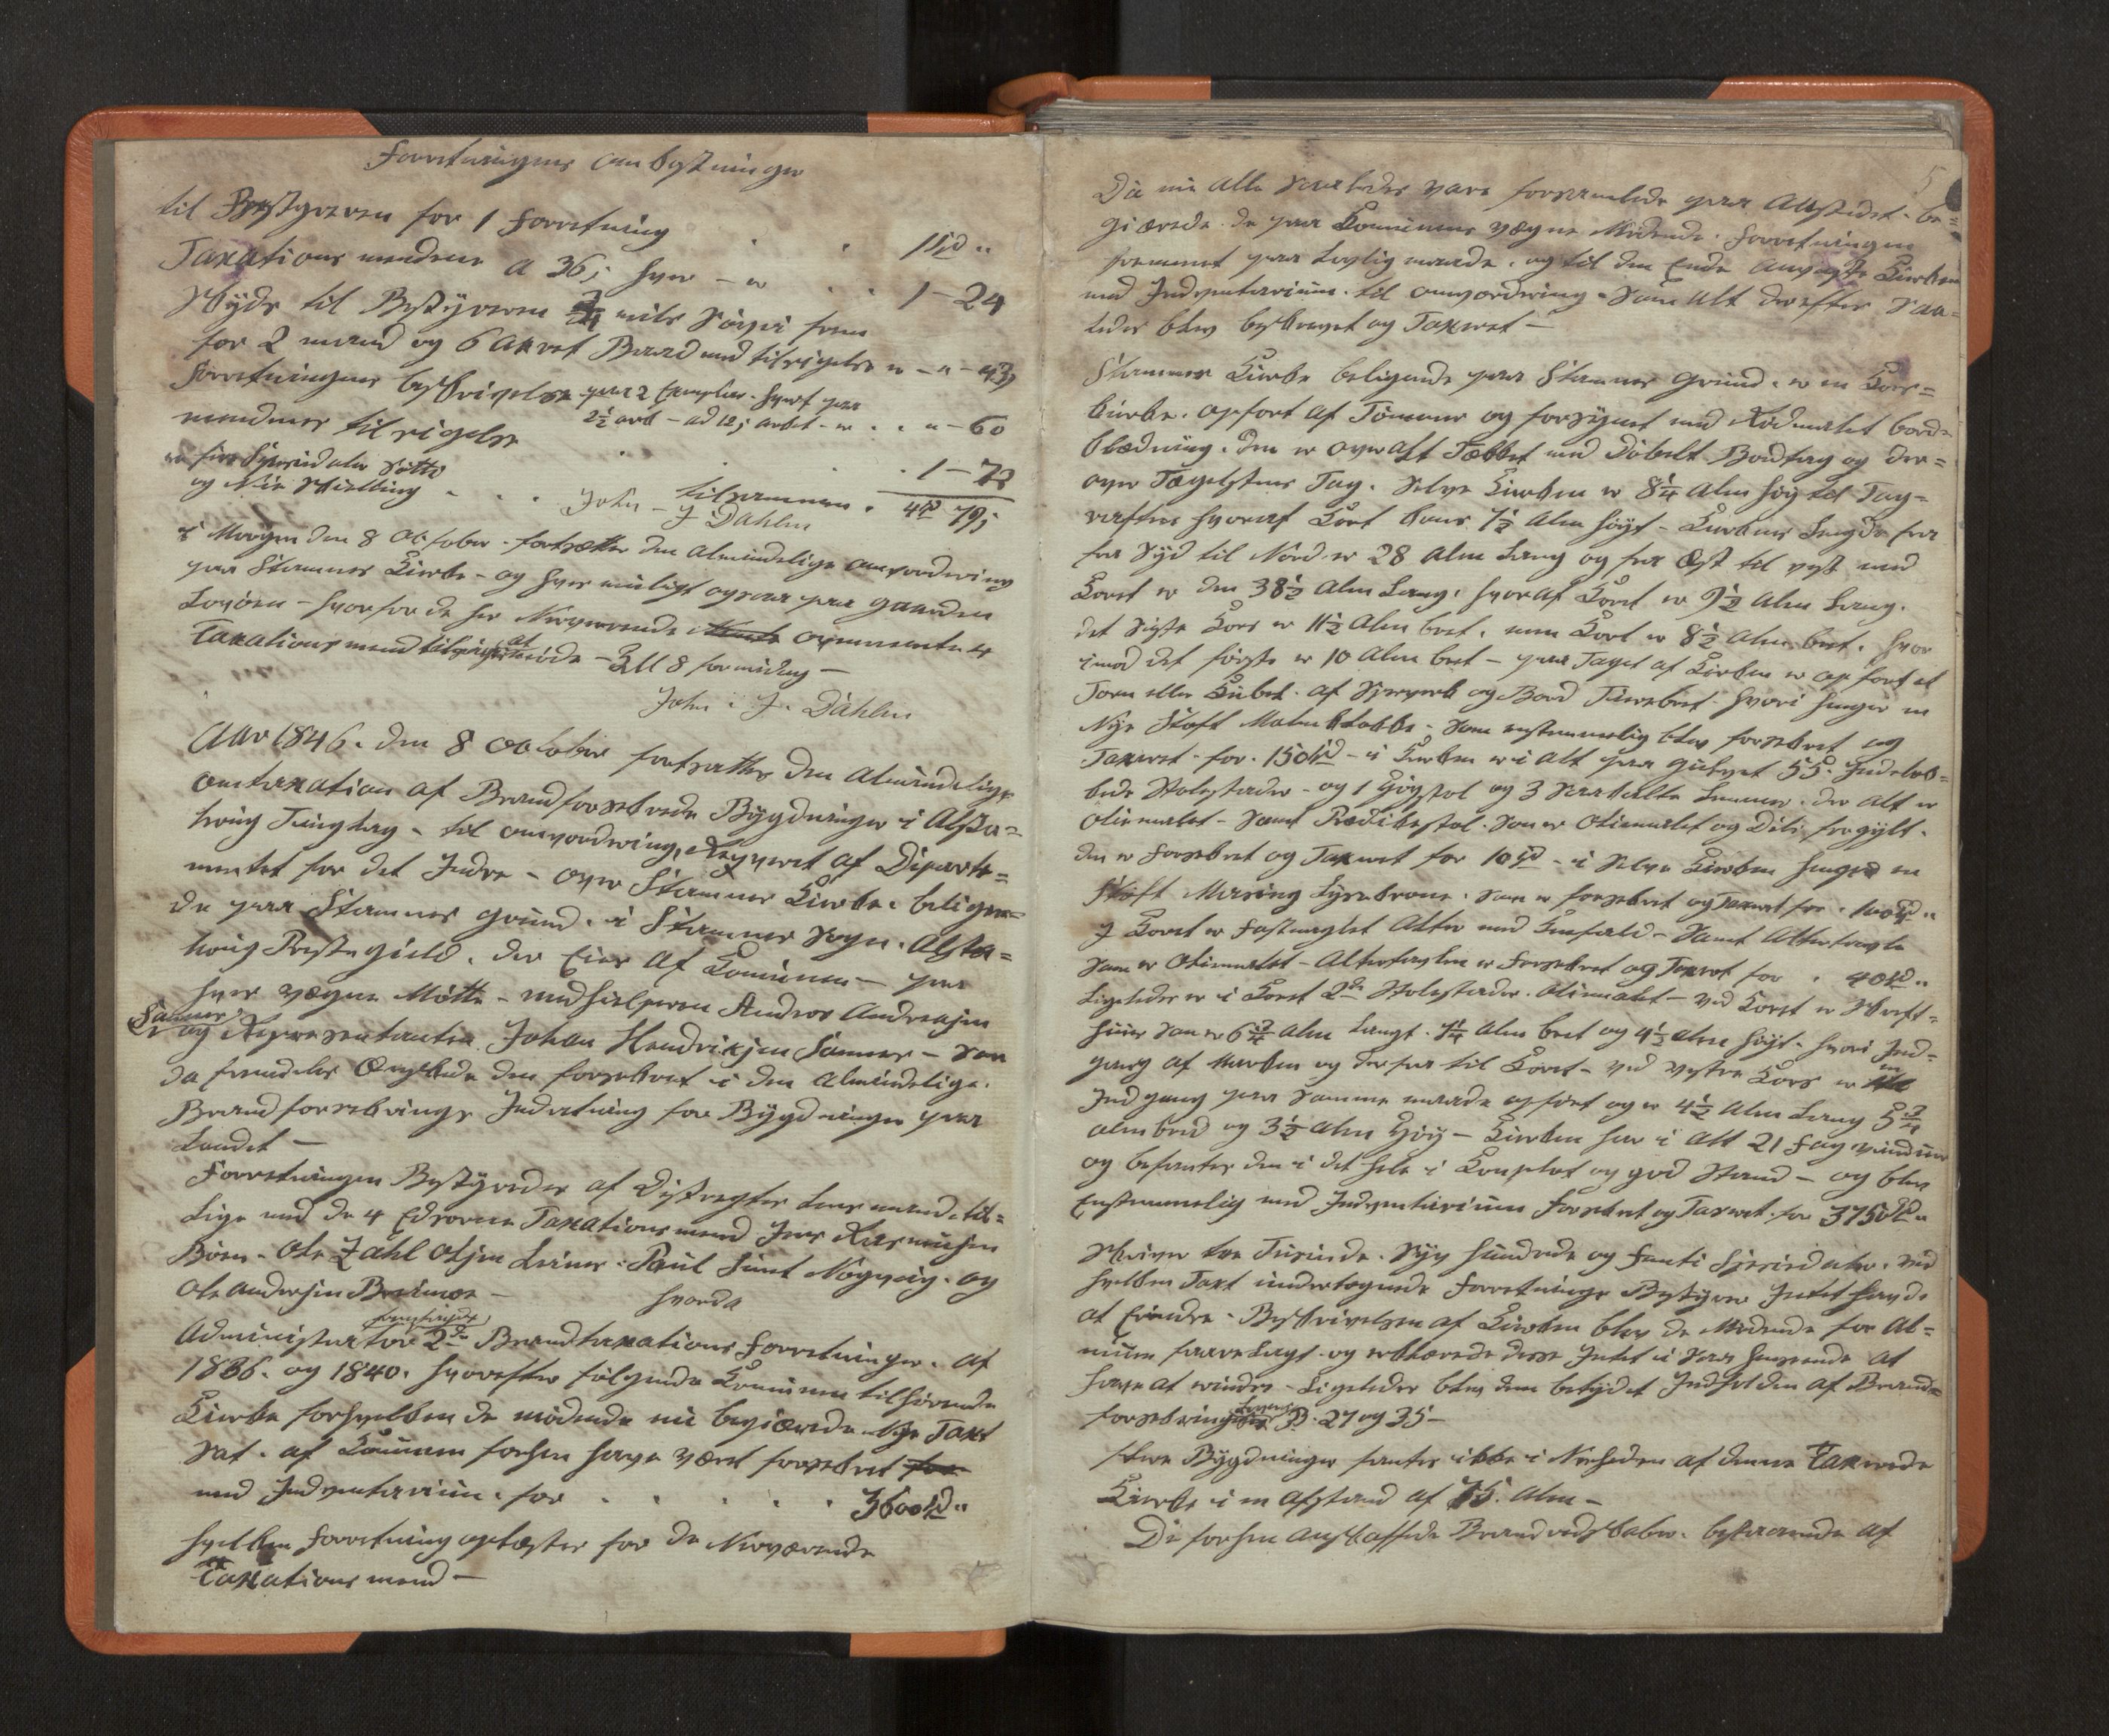 Forretningens omkostninger
til Bestyreren for 1 Forretning . . 1 Spd "
Taxations mendene a 36 s hver - er . . 1 - 24
Skyds til Bestyreren 3/4 miils Søvei frem
for 2 mand og 6 Aaret Baad med tilsigelse er - " - 43
Forretningens beskrivelse paa 2 Exempler. hvert paa
2½ ark - ad 12 s arket - er . . " - 60
mendenes tilsigelse . . . 1 - 72
er fire Speciedaler Søtti
og Nie Skielling - . . tilsammen . 4 Spd 79 s
John - J Dahlen
i Morgen den 8 October fortsættes den Almindelige omvordering
paa Stamnes Kirke - og hvis muligt ogsaa paa gaarden
Lovøen - hvorfor de her Nærværende ovennevnte 4
Taxationsmend tilsiges at møde - Kl 8 formidag -
John : J. Dahlen
Aar 1846. den 8 October fortsattes den Almindelige
omtaxation af Brandforsikrede Bygdninger i Alsta=
houg Tinglag - til omvordering, Reqvireret af Departe=
mentet for det Indre - over Stamnes Kirke. beligen=
de paa Stamnes grund. i Stamnes Sogn. Alsta=
houg Prestegield. der Eies af Comunen - paa
hvis vægne Møtte - medhielperen Andros Andreasen
Sannes
og Representanten Johan Hendriksen Sannes - som
da fremdeles Ønskede den forsikret i den Almindelige
Brandforsikrings Indretning for Bygdninger paa
Landet -
Forretningen Bestyredes af Distregtes Lensmand. til=
lige med de 4 Edsvorne Taxationsmend Jens Rasmusen
Bøen - Ole Zahl Olsen Leines : Paul Simt Nøgveig. og
Ole Andersen
hvorda
Administrator 2de Brandtaxations Forretninger. af
1836. og 1840. hvorefter følgende Comunen tilhørende
Kirke forhvilken de mødende nu begiærede Nye Taxt
sat. af Comunen forhen have vært forsikret
med Indventarium. for . . . . . 3600 Spd "
hvilken Forretning oplæstes for de Nærværende
Taxationsmend -
5
Da nu Alle saaledes vare forsamlede paa Aastedet - be=
giærede de paa Comunens vægne Mødende. Forretningen
fremmet paa Lovlig maade. og til den Ende anviste Kirken
med Indventarium. til omvordering. som Alt derefter saa=
ledes blev beskrevet og Taxeret -
Stamnes Kirke beligende paa Stamnes Grund. er en Kors=
kirke. opført af Tømmer og forsynet med Rødmalet bord=
klædning. den er overalt Tækket med Dobelt Bordtag og der=
over Tægelstens Tag. selve Kirken er 8¼ Alen høy til Tag=
raften hvoraf Kort kuns 7½ Alen høyt - Kirkens Lengde fra
fra Syd til Nord er 28 Alen Lang og fra Øst til vest med
Koret er den 38½ Alen Lang. hvoraf Koret er 9½ Alen Lang.
det sidste Kors er 11½ Alen bret. men Koret er 8½ Alen bret. hvor
imod det første er 10 Alen bret - paa Taget af Kirken er opført et
Torn eller Kubel. af Sperverk og Bord hvori henger en
Nye Støft Malmklokke - som enstemmelig blev forsikret og
Taxeret - for . 150 Spd - i Kirken er i Alt paa gulvet 55. Indeluk=
kede Stolestader - og 1 Høystol og 3 saakalte Lemmer. der Alt er
Oliemalet - samt Prædikestol. som er Oliemalet og Deels forgylt.
den er forsikret og Taxeret for 10 Spd - i selve Kirken henger en
Støft Messing Lysekrone. som er forsikret og Taxeret for . 100 Spd "
I Koret er Fastnaglet Alter med Knefald - samt Altertavle
som er Oliemalet - Altertavlen er Forsikret og Taxeret for . 40 Spd "
Ligeledes er i Koret 2de Stolestader. Oliemalet - ved Koret er Skrift=
huus som er 6¾ Alen Langt. 7¼ Alen bret og 4½ Alen høyt. hvori Ind=
gang af Marken og derfra til Koret - ved vestre Kors er en
Indgang paa samme maade opført og er 4½ Alen Lang 5¾
Alen bred og 3½ Alen høy - Kirken har i Alt 21 fag vinduer
og befantes den i det hele i Komplet og god Stand - og blev
Enstemmelig med Indventarium Forsikret og Taxeret for 3750 Spd "
Skriver tre Tusinde. syv hundrede og Femti Speciedaler. ved
hvilken Taxt undertegnede Forretnings Bestyrer Intet havde
at Erindre - Beskrivelsen af Kirken blev de Mødende for Al=
muen forelagt og erklærede disse Intet i saa henseende at
have at erindre - Ligeledes blev dem betydet Indholden af Brand=
forsikrings Lovens § 27 og 35 -
flere Bygdninger fantes ikke i Nerheden af denne Taxerede
Kirke i en Afstand af 75. Alen -
De forhen anskaffede Brandredskaber. bestaaende af